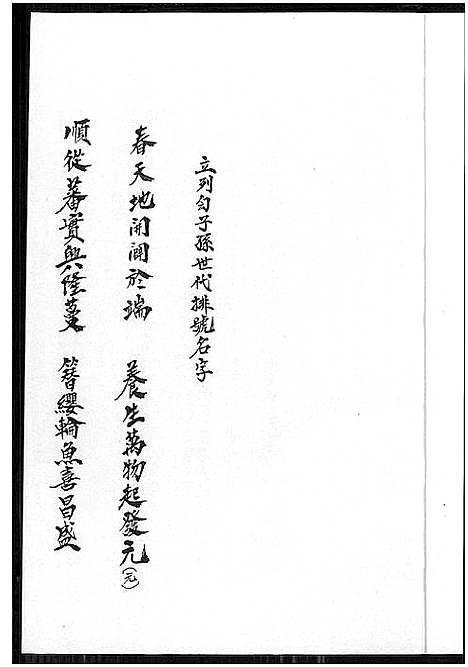 立列勻子孫世代排號名字
春天地開闢於端 養生萬物起發元(元)
順從蕃實與隆蔓 簪纓輪魚喜昌盛